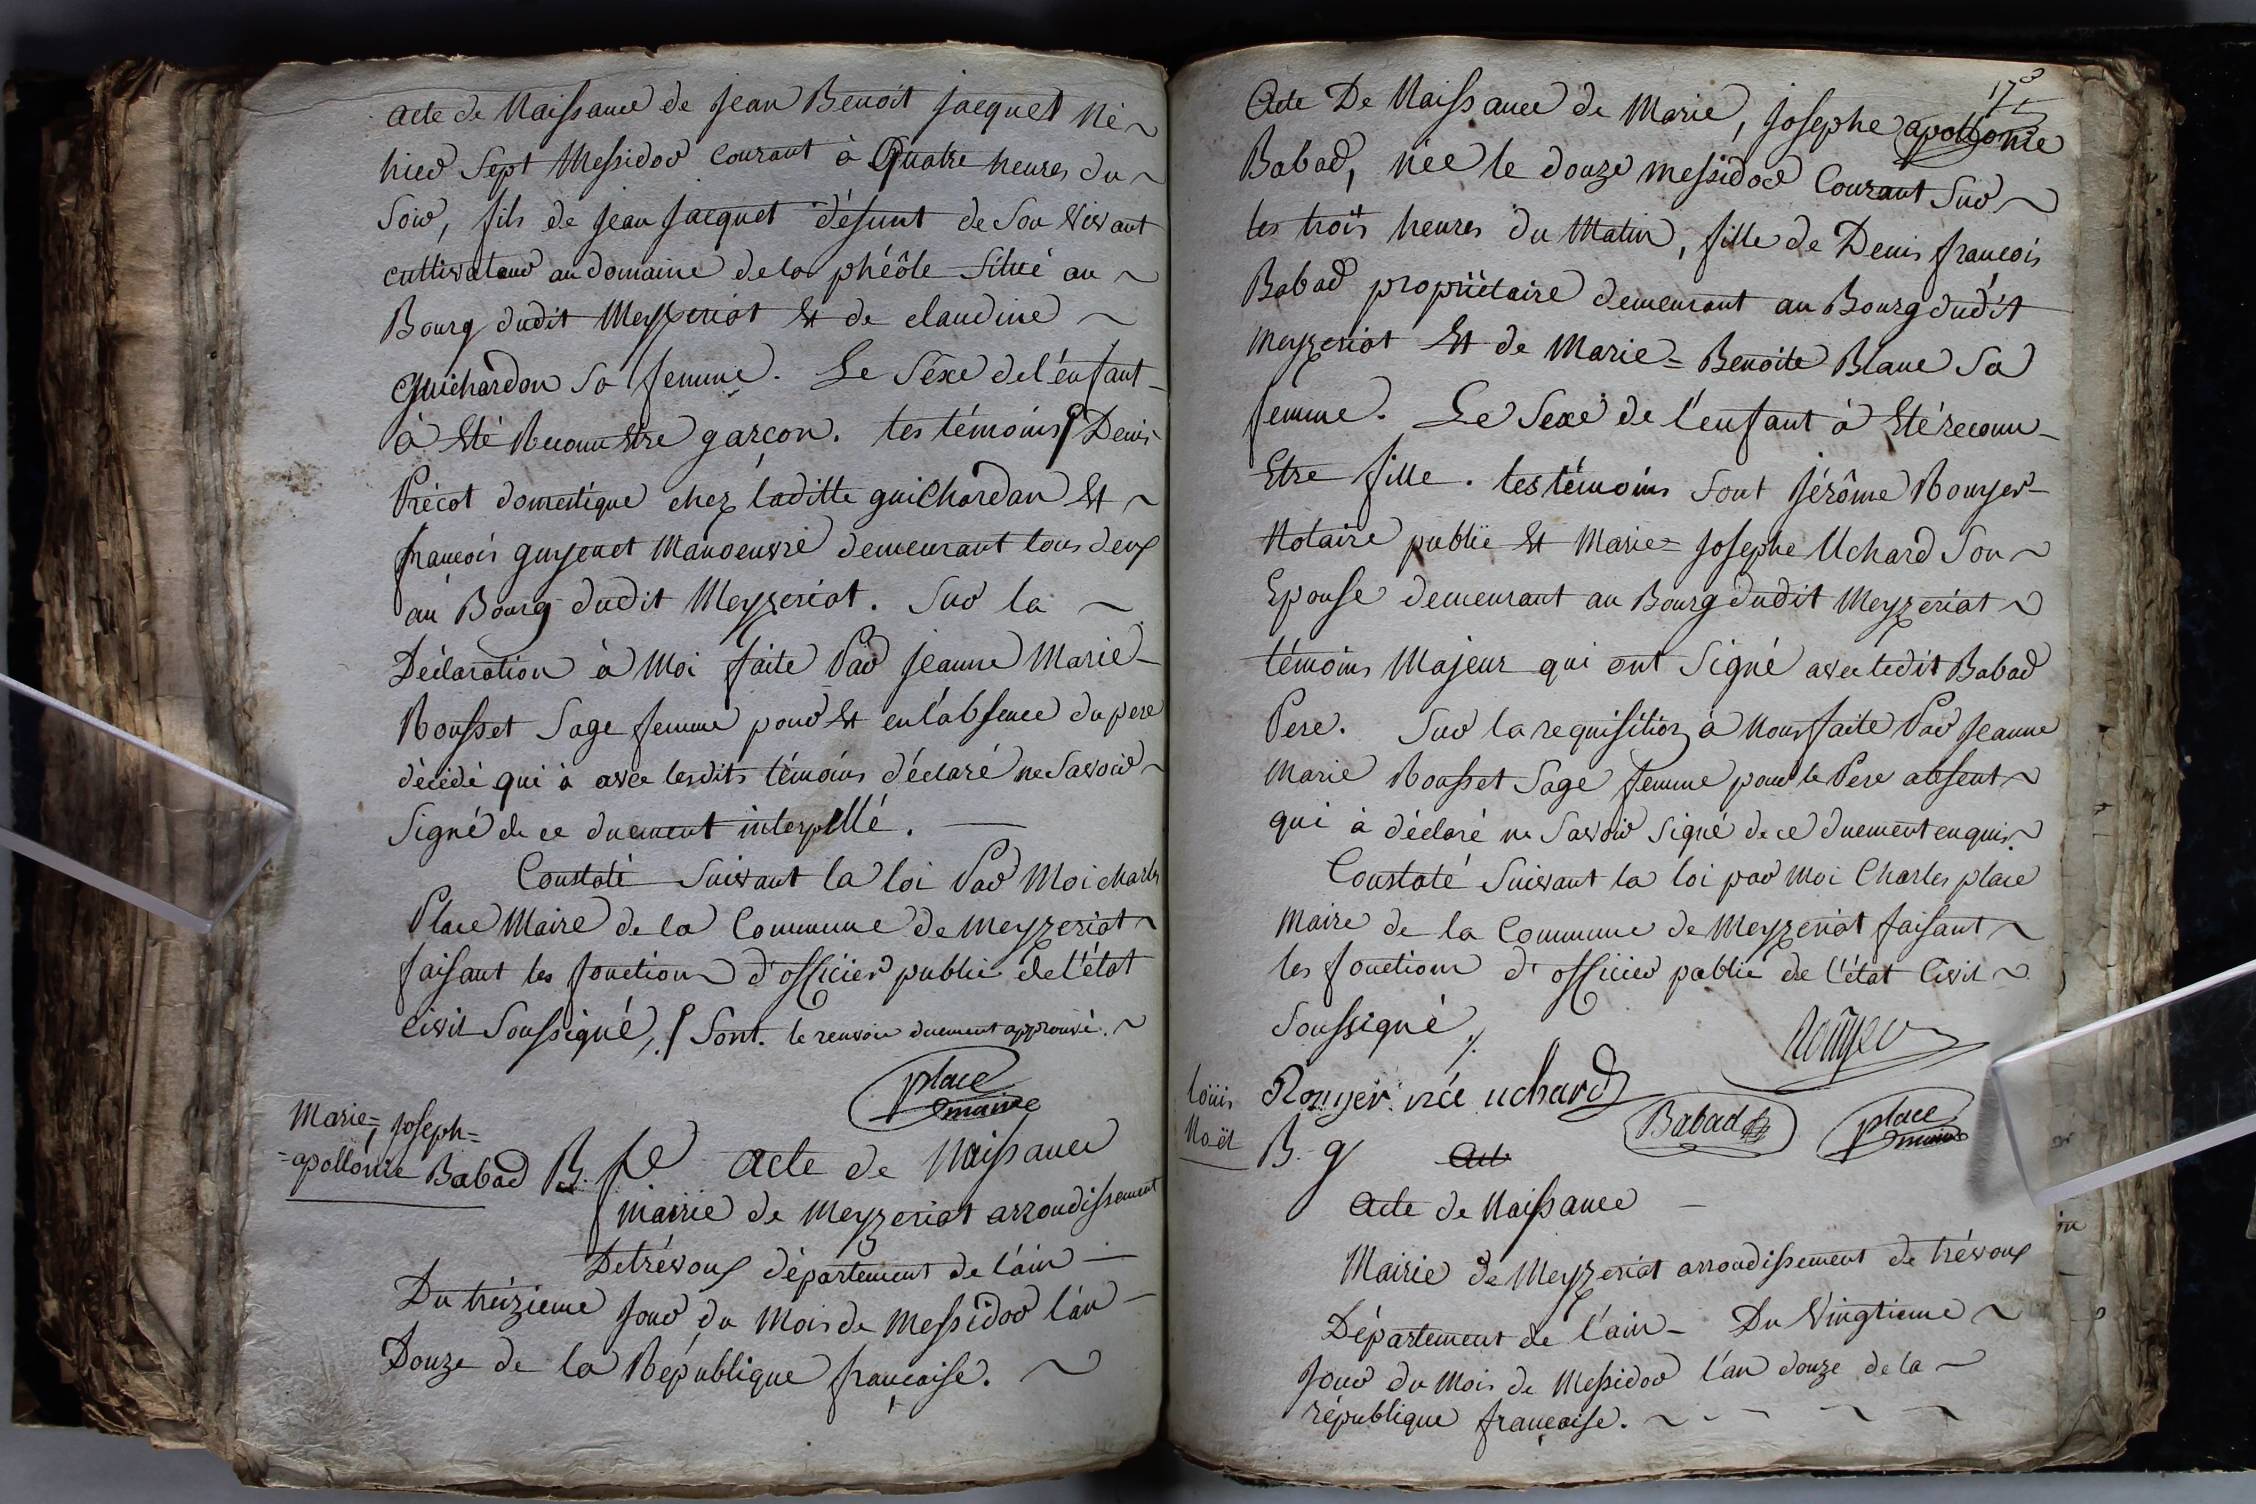 acte de Naissance de Jean Benoit Jacquet Né
hier Sept Messidor Courant à Quatre heures du
Soir, fils de Jean Jacquet défunt de Son Vivant
cultivateur au domaine de la phéôle Situé au
Bourg dudit Meyzeriat Et de claudine
Guichardon Sa femme. Le Séxe de l'énfant
à Eté Reconnu Etre garçon. les témoins ∫ Denis
Précot domestique chez laditte guichardan Et
françois guyenet Manoeuvre demeurant tous deux
au Bourg dudit Meyzeriat. Sur la
Déclaration à Moi faite Par Jeanne Marie
Rousset Sage femme pour Et en l'absence du pere
décédé qui à avec lesdits témoins déclaré ne Savoir
Signé de ce duement interpellé.
Constaté Suivant la loi Par Moi charles
Place Maire de la Commune de Meyzeriat
faisant les fonction d'officier public de l'état
Civil Soussigné, ∫ Sont. le renvoi duement approuvé.
place
maire
Marie=, Joseph=
=apollonie Babad B. fe acte de Naissance
mairie de Meyzeriat arrondissement
De trévoux département de l'ain
Du treizieme Jour du Mois de Messidor l'an
Douze de la République française.
173
Acte De Naissance de Marie, Josephe apollonie
Babad, née le douze messidor Courant Sur
les trois heures du Matin, fille de Denis françois
Babad propriëtaire demeurant au Bourg dudit
Meyzeriat Et de Marie=Benoite Blanc Sa
femme. Le Sexe de l'enfant à Eté reconnu
Etre fille. les témoins Sont Jérôme Rouyer
Notaire public Et Marie=Josephe Uchard Son
Epouse demeurant au Bourg dudit Meyzeriat
témoins Majeur qui ont Signé avec ledit Babad
Pere. Sur la requisition à Nous faite Par Jeanne
Marie Rousset Sage femme pour le Pere absent
qui à déclaré ne Savoir Signé de ce duement enquis
Constaté Suivant la loi par Moi Charles place
Maire de la Commune de Meyzeriat faisant
les fonction d'officier public de l'état Civil
Soussigné
Rouyer
Rouyer née uchard
Babad
place
maire
loüis
Noël
B. g Act
Acte de Naissance
Mairie de Meyzeriat arrondissement de trévoux
Département de l'ain - Du Vingtieme
Jour du Mois de Messidor l'an douze de la
république française.